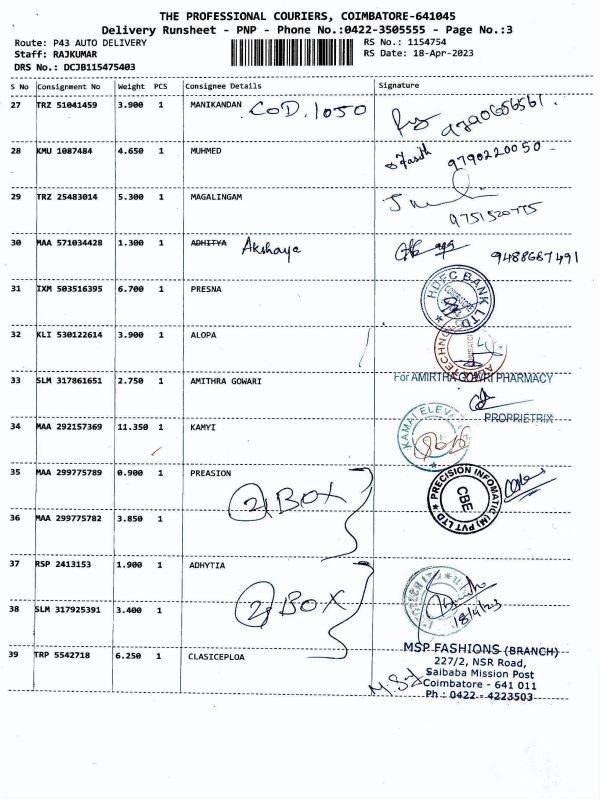 THE PROFESSIONAL COURIERS, COIMBATORE-641045
Delivery Runsheet - PNP - Phone No.:0422-3505555 - Page No.:3
Route: P43 AUTO DELIVERY
RS No.: 1154754
Staff: RAJKUMAR
RS Date: 18-Apr-2023
DRS No.: DCJB115475403
S No Consignment No Weight PCS Consignee Details Signature
27 TRZ 51041459 3.900 1 MANIKANDAN COD. 1050
28 KMU 1087484 4.650 1 MUHMED 9790220050
29 TRZ 25483014 5.300 1 MAGALINGAM
9751520775
30 MAA 571034428 1.300 1 ADHITYA Akshaya 9488667491
31 IXM 503516395 6.700 1 PRESNA HDFC BANK LTD.
32 KLI 530122614 3.900 1 ALOPA
33 SLM 317861651 2.750 1 AMITHRA GOWARI For AMIRTHA GOWRI PHARMACY
PROPRIETRIX
34 MAA 292157369 11.350 1 KAMYI
35 MAA 299775789 0.900 1 PREASION 2 BOX PRECISION INFOMATIC (M) PVT LTD
CBE
36 MAA 299775782 3.850 1
37 RSP 2413153 1.900 1 ADHYTIA
38 SLM 317925391 3.400 1 2 BOX 18/4/23
39 TRP 5542718 6.250 1 CLASICEPLOA MSP FASHIONS (BRANCH)
227/2, NSR Road,
Saibaba Mission Post
Coimbatore - 641 011
Ph : 0422 - 4223503